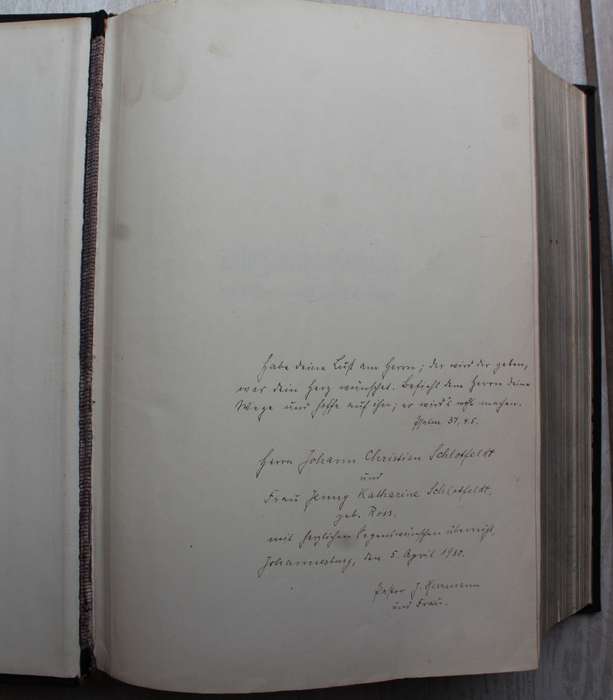 Habe deine Lust am Herrn; der wird dir geben,
was dein Herz wünschet. Befiehl dem Herrn deine
Wege und hoffe auf ihn; er wird's wohl machen.
Psalm 37, 4.5.
Herrn Johann Christian Schlotfeldt
und
Frau Jenny Katharine Schlotfeldt,
geb. Ross.
mit herzlichen Segenswünschen überreicht,
Johannesburg, den 5. April 19
Pastor J. Herrmann
und Frau.